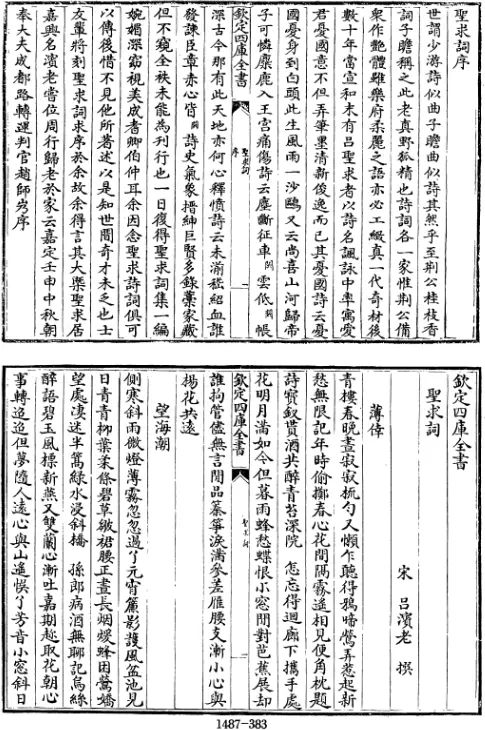 聖求詞序
世謂少游詩似曲子瞻曲似詩其然乎至荆公桂枝香
詞子瞻稱之此老真野狐精也詩詞各一家惟荆公備
衆作艷體雖樂府柔麗之語亦必工緻真一代奇材後
數十年當宣和末有吕聖求者以詩名諷詠中率寓愛
君憂國意不但弄筆墨清新俊逸而已其憂國詩云憂
國憂身到白頭此生風雨一沙鷗又云尚喜山河歸帝
子可憐麋鹿入王宫痛傷詩云塵斷征車闕雲低闕帳
欽定四庫全書
聖求詞
序
一
深古今那有此天地亦何心釋憤詩云未湔嵇紹血誰
發諫臣章赤心皆闕詩史氣象搢紳巨賢多錄藁家藏
但不窺全袟未能為刋行也一日復得聖求詞集一編
婉媚深窈視美成耆卿伯仲耳余因念聖求詩詞俱可
以傳後惜不見他所著述以是知世間奇才未乏也士
友輩將刻聖求詞求序於余故余得言其大槩聖求居
嘉興名濱老嘗位周行歸老於家云嘉定壬申中秋朝
奉大夫成都路轉運判官趙師岌序
欽定四庫全書
聖求詞
宋 吕濱老 撰
薄倖
青樓春晚晝寂寂梳勻又懶乍聽得鴉啼鶯弄惹起新
愁無限記年時偷擲春心花間隔霧遥相見便角枕題
詩寶釵貰酒共醉青苔深院 怎忘得迴廊下攜手處
花明月滿如今但暮雨蜂愁蝶恨小窓閒對芭蕉展却
欽定四庫全書
聖求詞
二
誰拘管儘無言閒品秦筝淚滿參差雁腰支漸小心與
楊花共遠
望海潮
側寒斜雨微燈薄霧忽忽過了元宵簾影護風盆池見
日青青柳葉柔條碧草皺裙腰正晝長烟煖蜂困鶯嬌
望處淒迷半篙緑水浸斜橋 孫郎病酒無聊記烏絲
醉語碧玉風標新燕又雙蘭心漸吐嘉期趂取花朝心
事轉迢迢但夢隨人遠心與山遥悞了芳音小窓斜日
1487-383